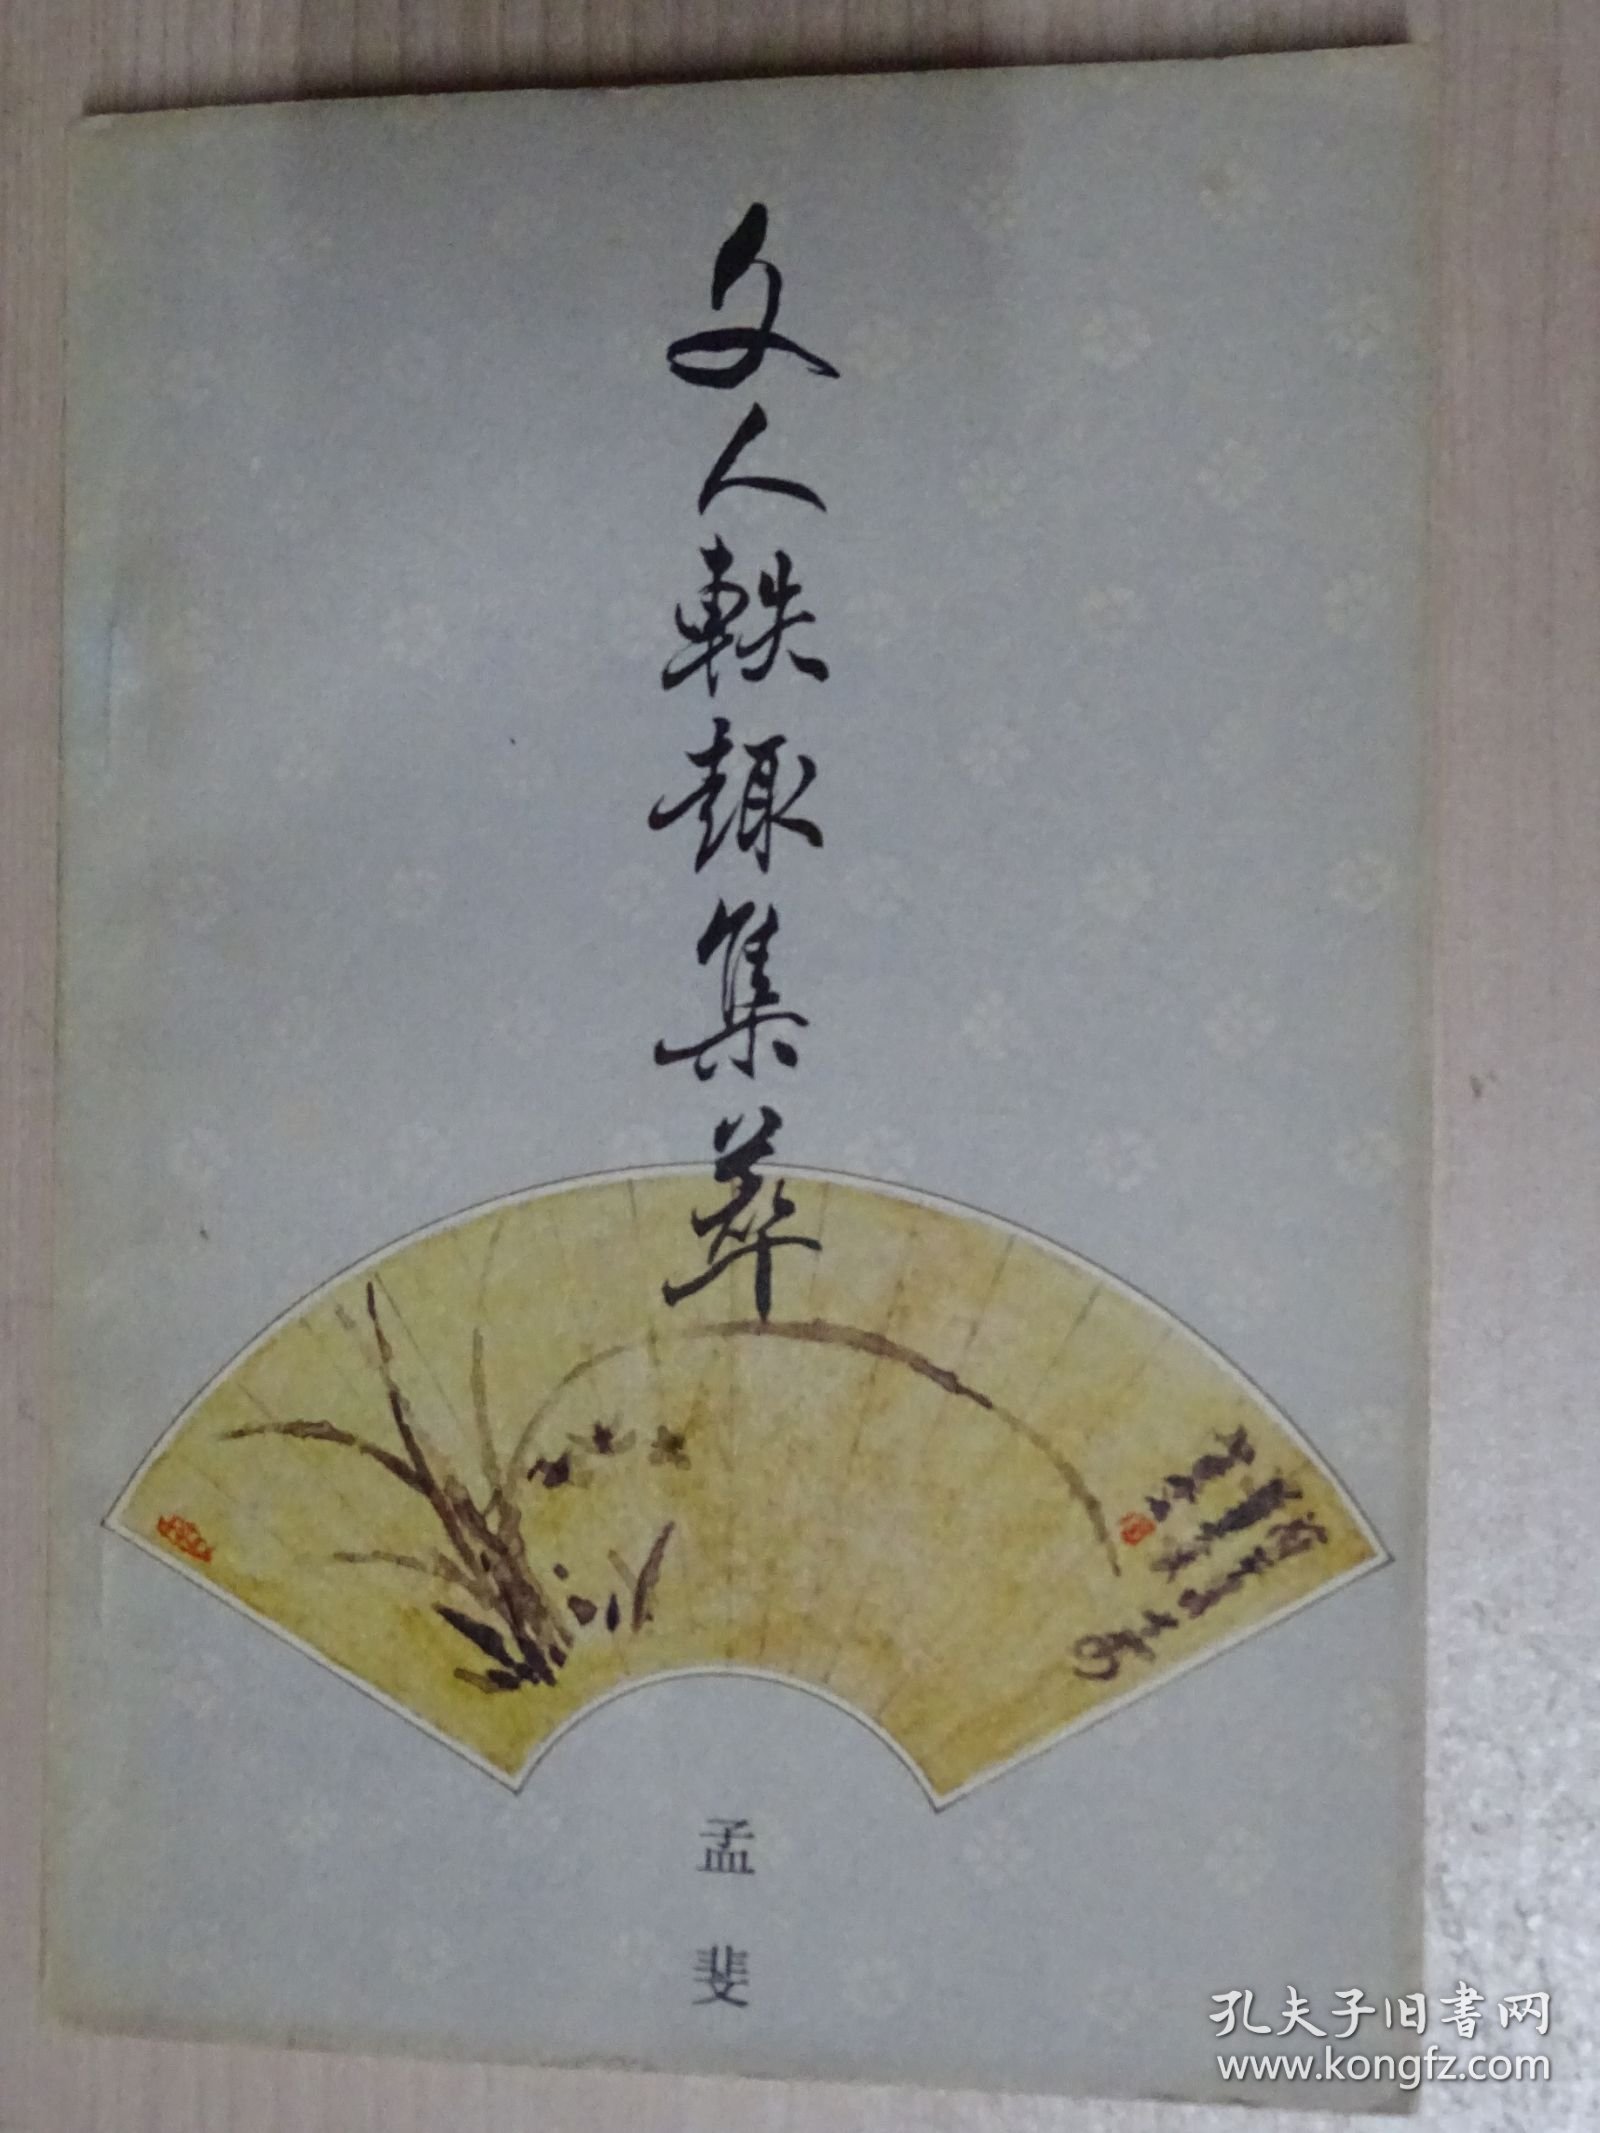 文人軼趣集萃
孟斐
孔夫子旧书网
www.kongfz.com